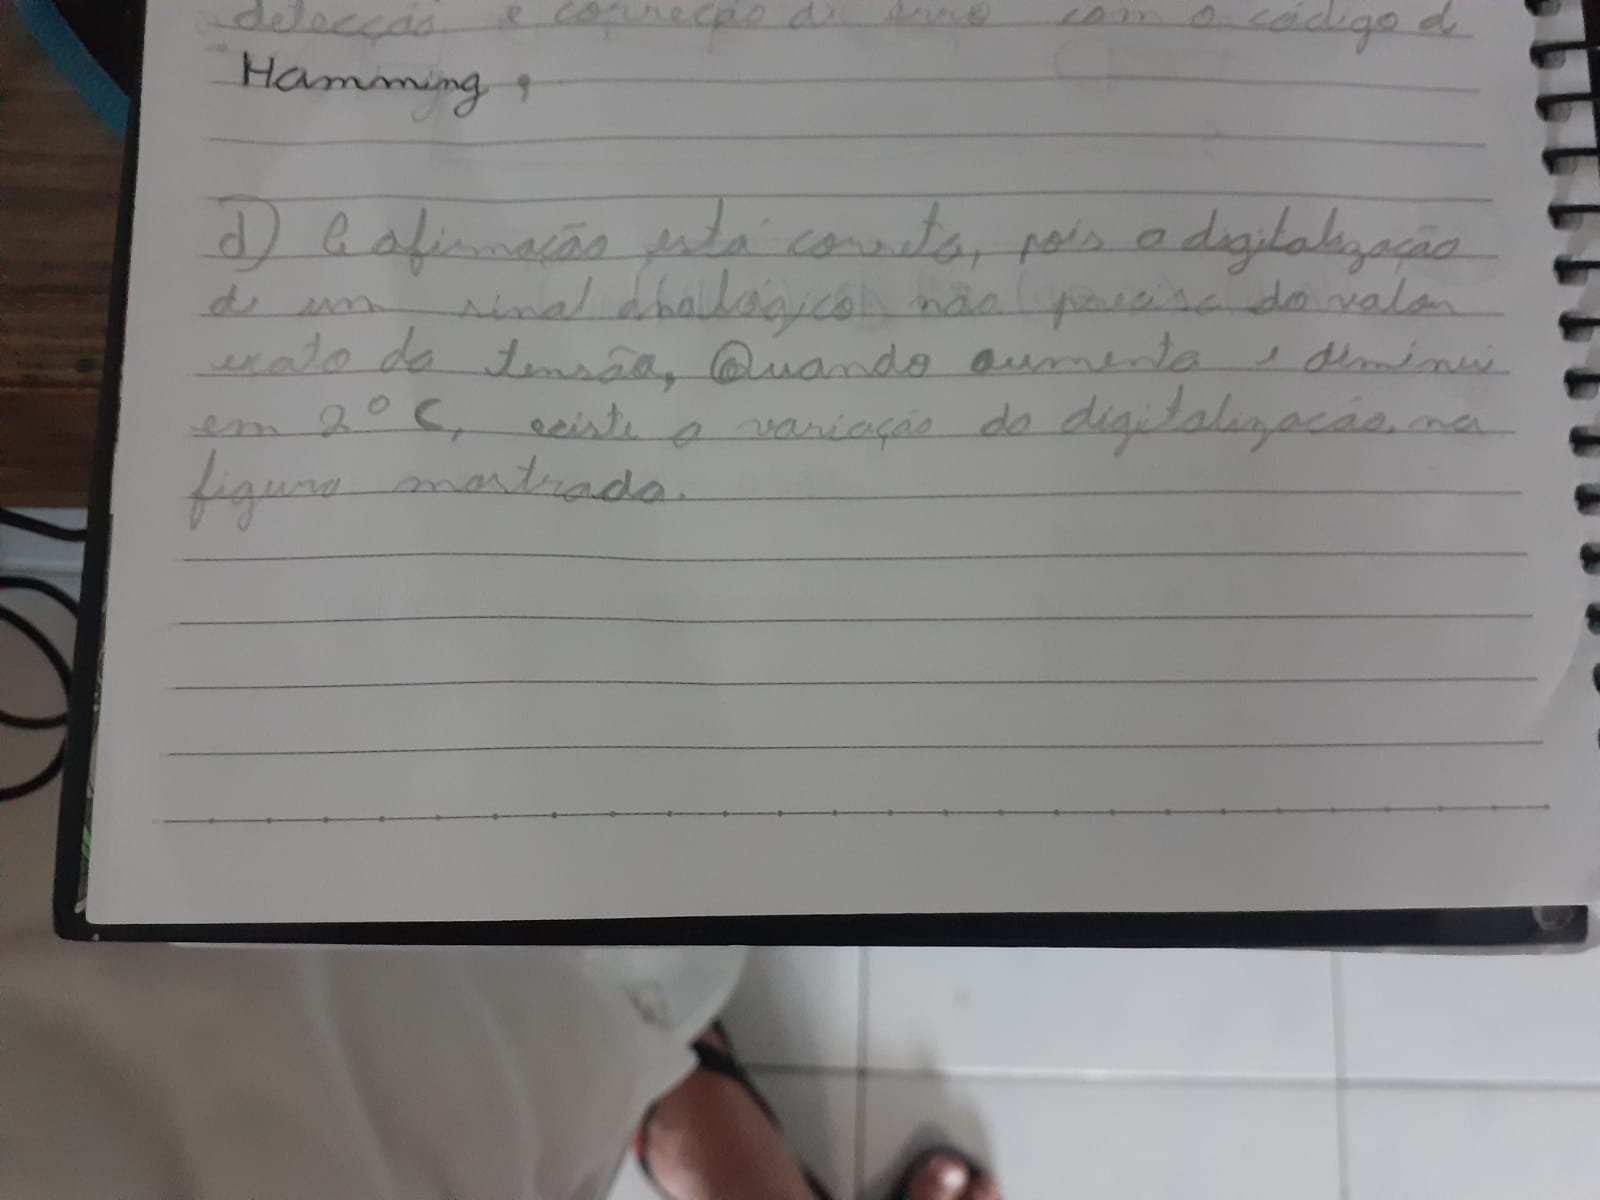 detecção e correção de erro com o código d
Hamming,
d) A afirmação está correta, pois a digitalização
de um sinal analógico não precisa do valor
exato da tensão, Quando aumenta e diminui
em 2°C, existe a variação da digitalização na
figura mostrada.